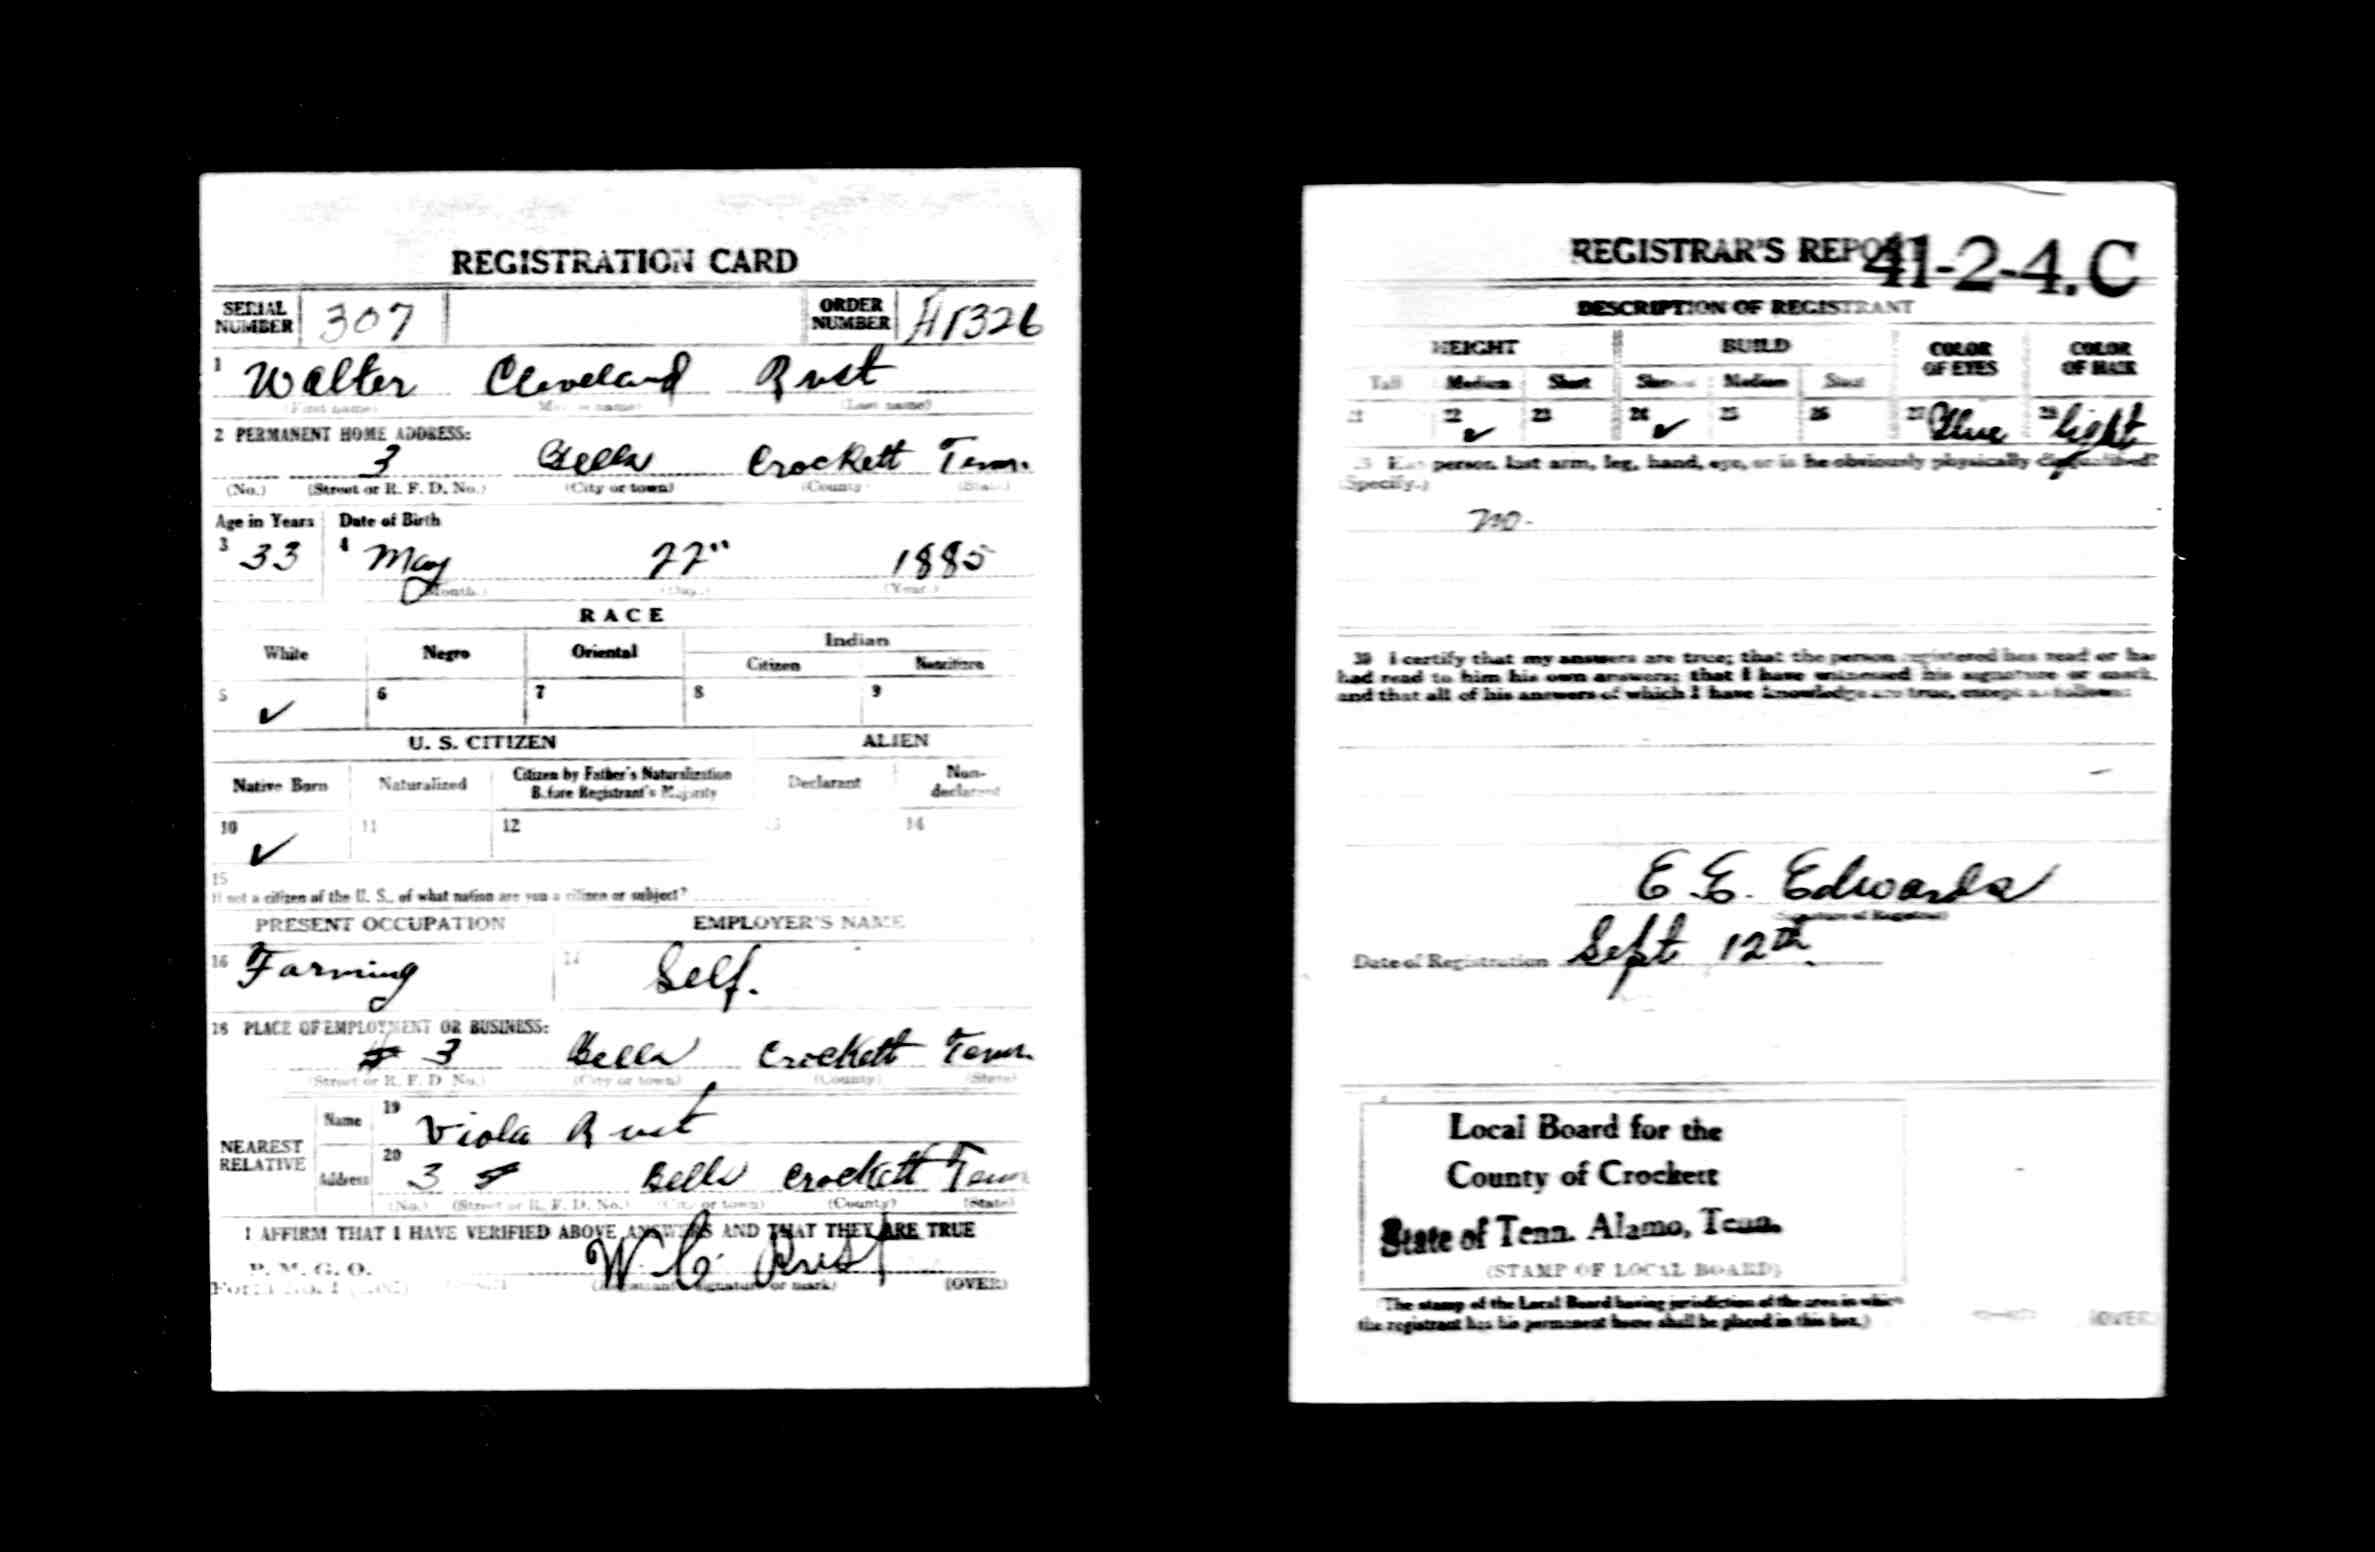 REGISTRATION CARD
SERIAL NUMBER 307 ORDER NUMBER A1326
1 Walter Cleveland Rust
(First name) (Last name)
2 PERMANENT HOME ADDRESS:
3 Bells Crockett Tenn.
(No.) (Street or R. F. D. No.) (City or town) (County) (State)
Age in Years Date of Birth
3 33 4 May 22" 1885
(Month.) (Day.) (Year.)
RACE
White Negro Oriental Indian
Citizen Noncitizen
5 ✓ 6 7 8 9
U. S. CITIZEN ALIEN
Native Born Naturalized Citizen by Father's Naturalization Before Registrant's Majority Declarant Non-declarant
10 ✓ 11 12 13 14
15
If not a citizen of the U. S., of what nation are you a citizen or subject?
PRESENT OCCUPATION EMPLOYER'S NAME
16 Farming 17 Self.
18 PLACE OF EMPLOYMENT OR BUSINESS:
# 3 Bells Crockett Tenn.
(Street or R. F. D. No.) (City or town) (County) (State)
NEAREST RELATIVE Name 19 Viola Rust
Address 20 3 Bells Crockett Tenn
(No.) (Street or R. F. D. No.) (City or town) (County) (State)
I AFFIRM THAT I HAVE VERIFIED ABOVE ANSWERS AND THAT THEY ARE TRUE
P. M. G. O.
W C Rust
(Registrant's signature or mark) (OVER)
REGISTRAR'S REPORT 41-2-4.C
DESCRIPTION OF REGISTRANT
HEIGHT BUILD COLOR OF EYES COLOR OF HAIR
Tall Medium Short Slender Medium Stout
21 22 ✓ 23 24 ✓ 25 26 27 Blue 28 light
29 Has person lost arm, leg, hand, eye, or is he obviously physically disqualified?
(Specify.)
no.
30 I certify that my answers are true; that the person registered has read or has
had read to him his own answers; that I have witnessed his signature or mark,
and that all of his answers of which I have knowledge are true, except as follows:
E. E. Edwards
(Signature of Registrar)
Date of Registration Sept 12th
Local Board for the
County of Crockett
State of Tenn. Alamo, Tenn.
(STAMP OF LOCAL BOARD)
(The stamp of the Local Board having jurisdiction of the area in which
the registrant has his permanent home shall be placed in this box.)
(OVER)